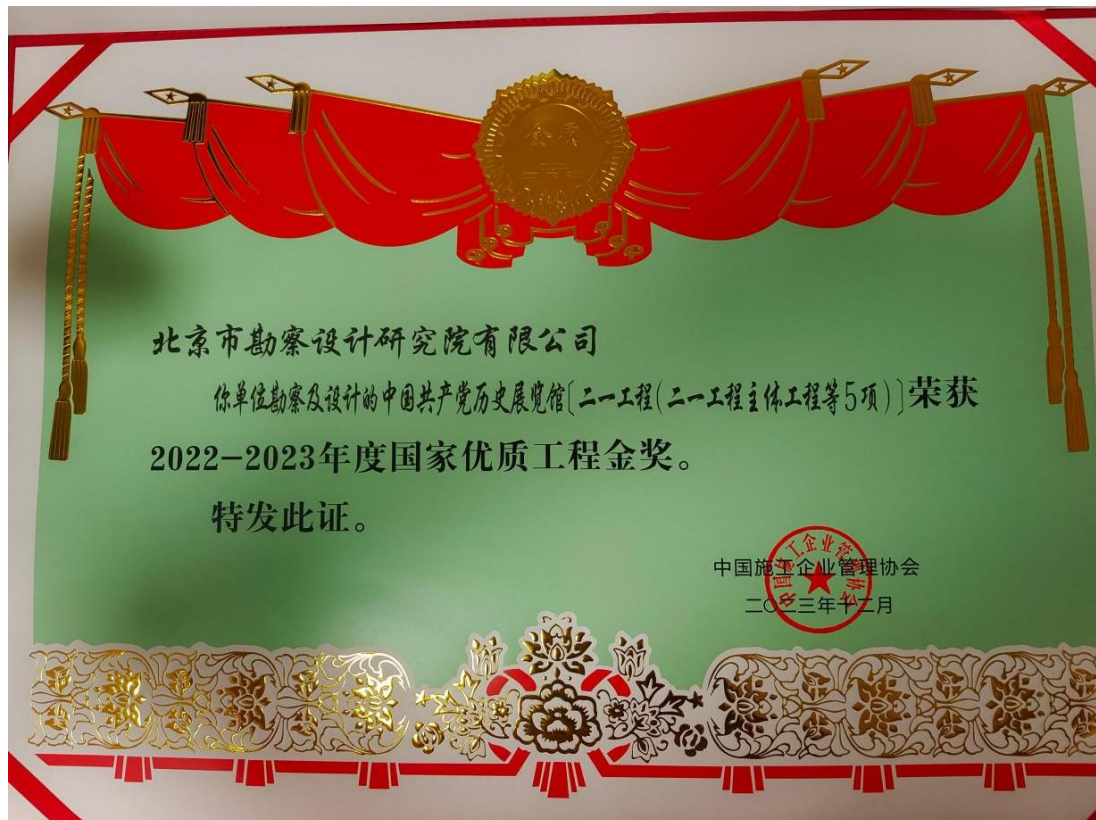 金质
北京市勘察设计研究院有限公司
你单位勘察及设计的中国共产党历史展览馆[二一工程(二一工程主体工程等5项)]荣获
2022-2023年度国家优质工程金奖。
特发此证。
中国施工企业管理协会
中国施工企业管理协会
二〇二三年十二月